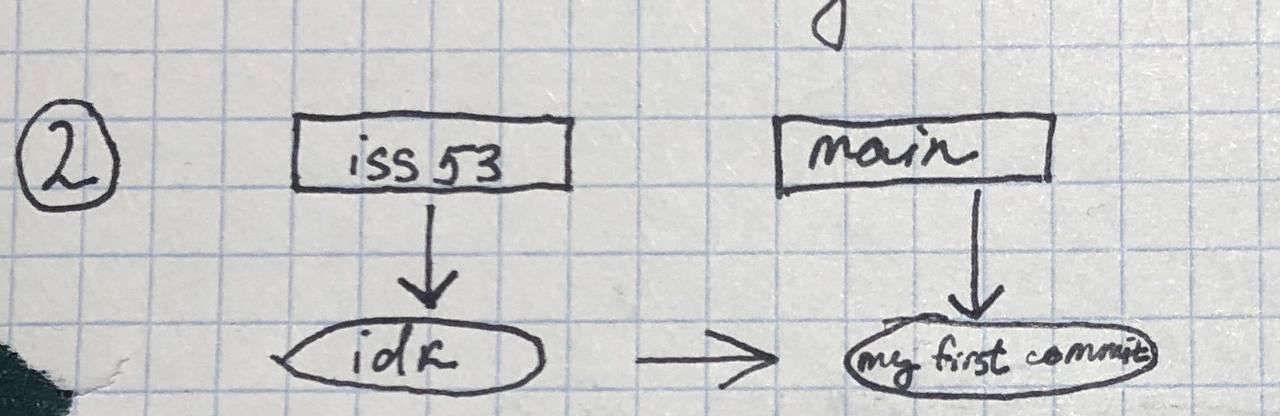 2
iss 53 main
idk my first commit